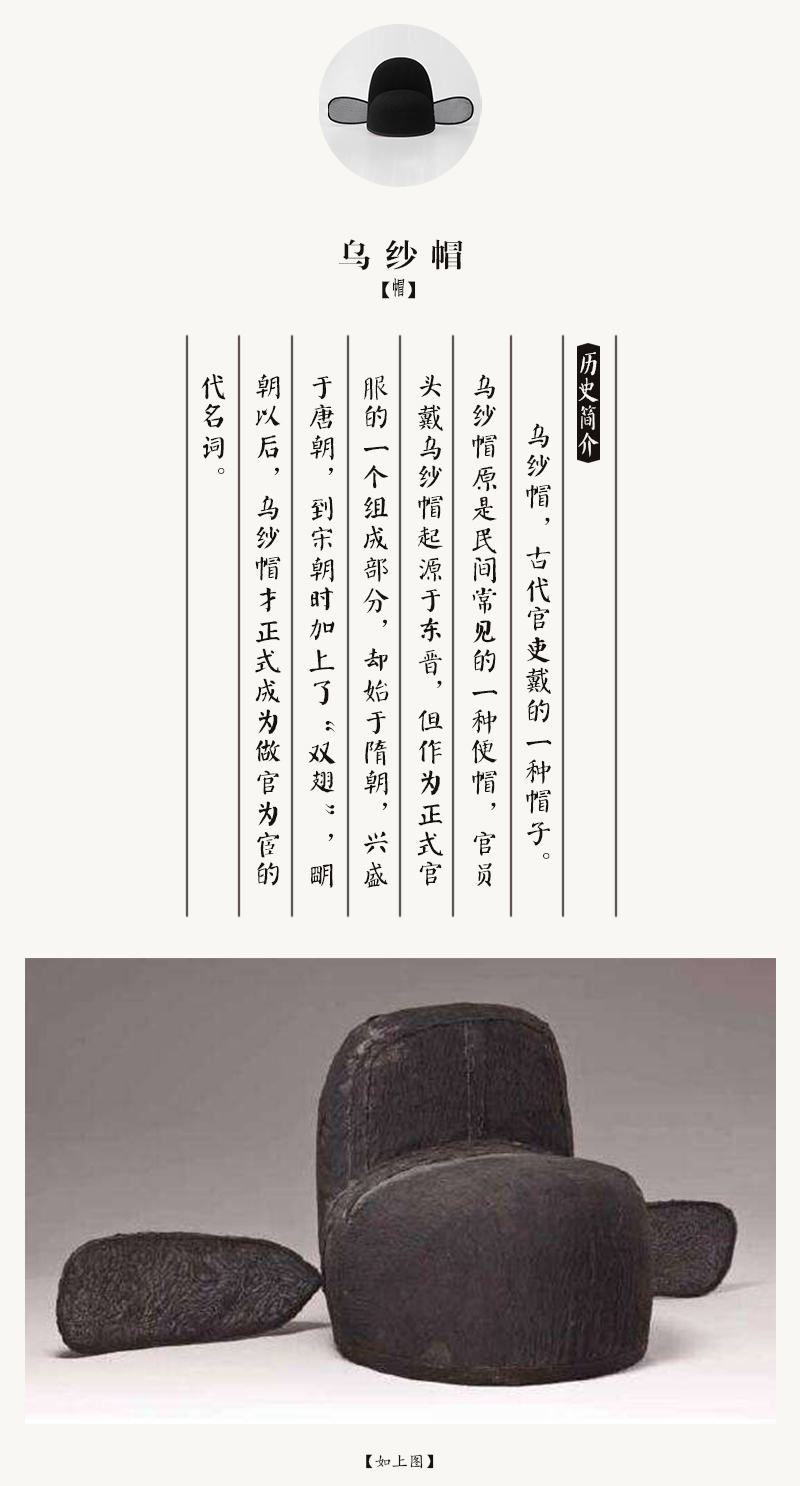 乌纱帽
【帽】
历史简介
乌纱帽，古代官吏戴的一种帽子。
乌纱帽原是民间常见的一种便帽，官员
头戴乌纱帽起源于东晋，但作为正式官
服的一个组成部分，却始于隋朝，兴盛
于唐朝，到宋朝时加上了“双翅”，明
朝以后，乌纱帽才正式成为做官为宦的
代名词。
【如上图】